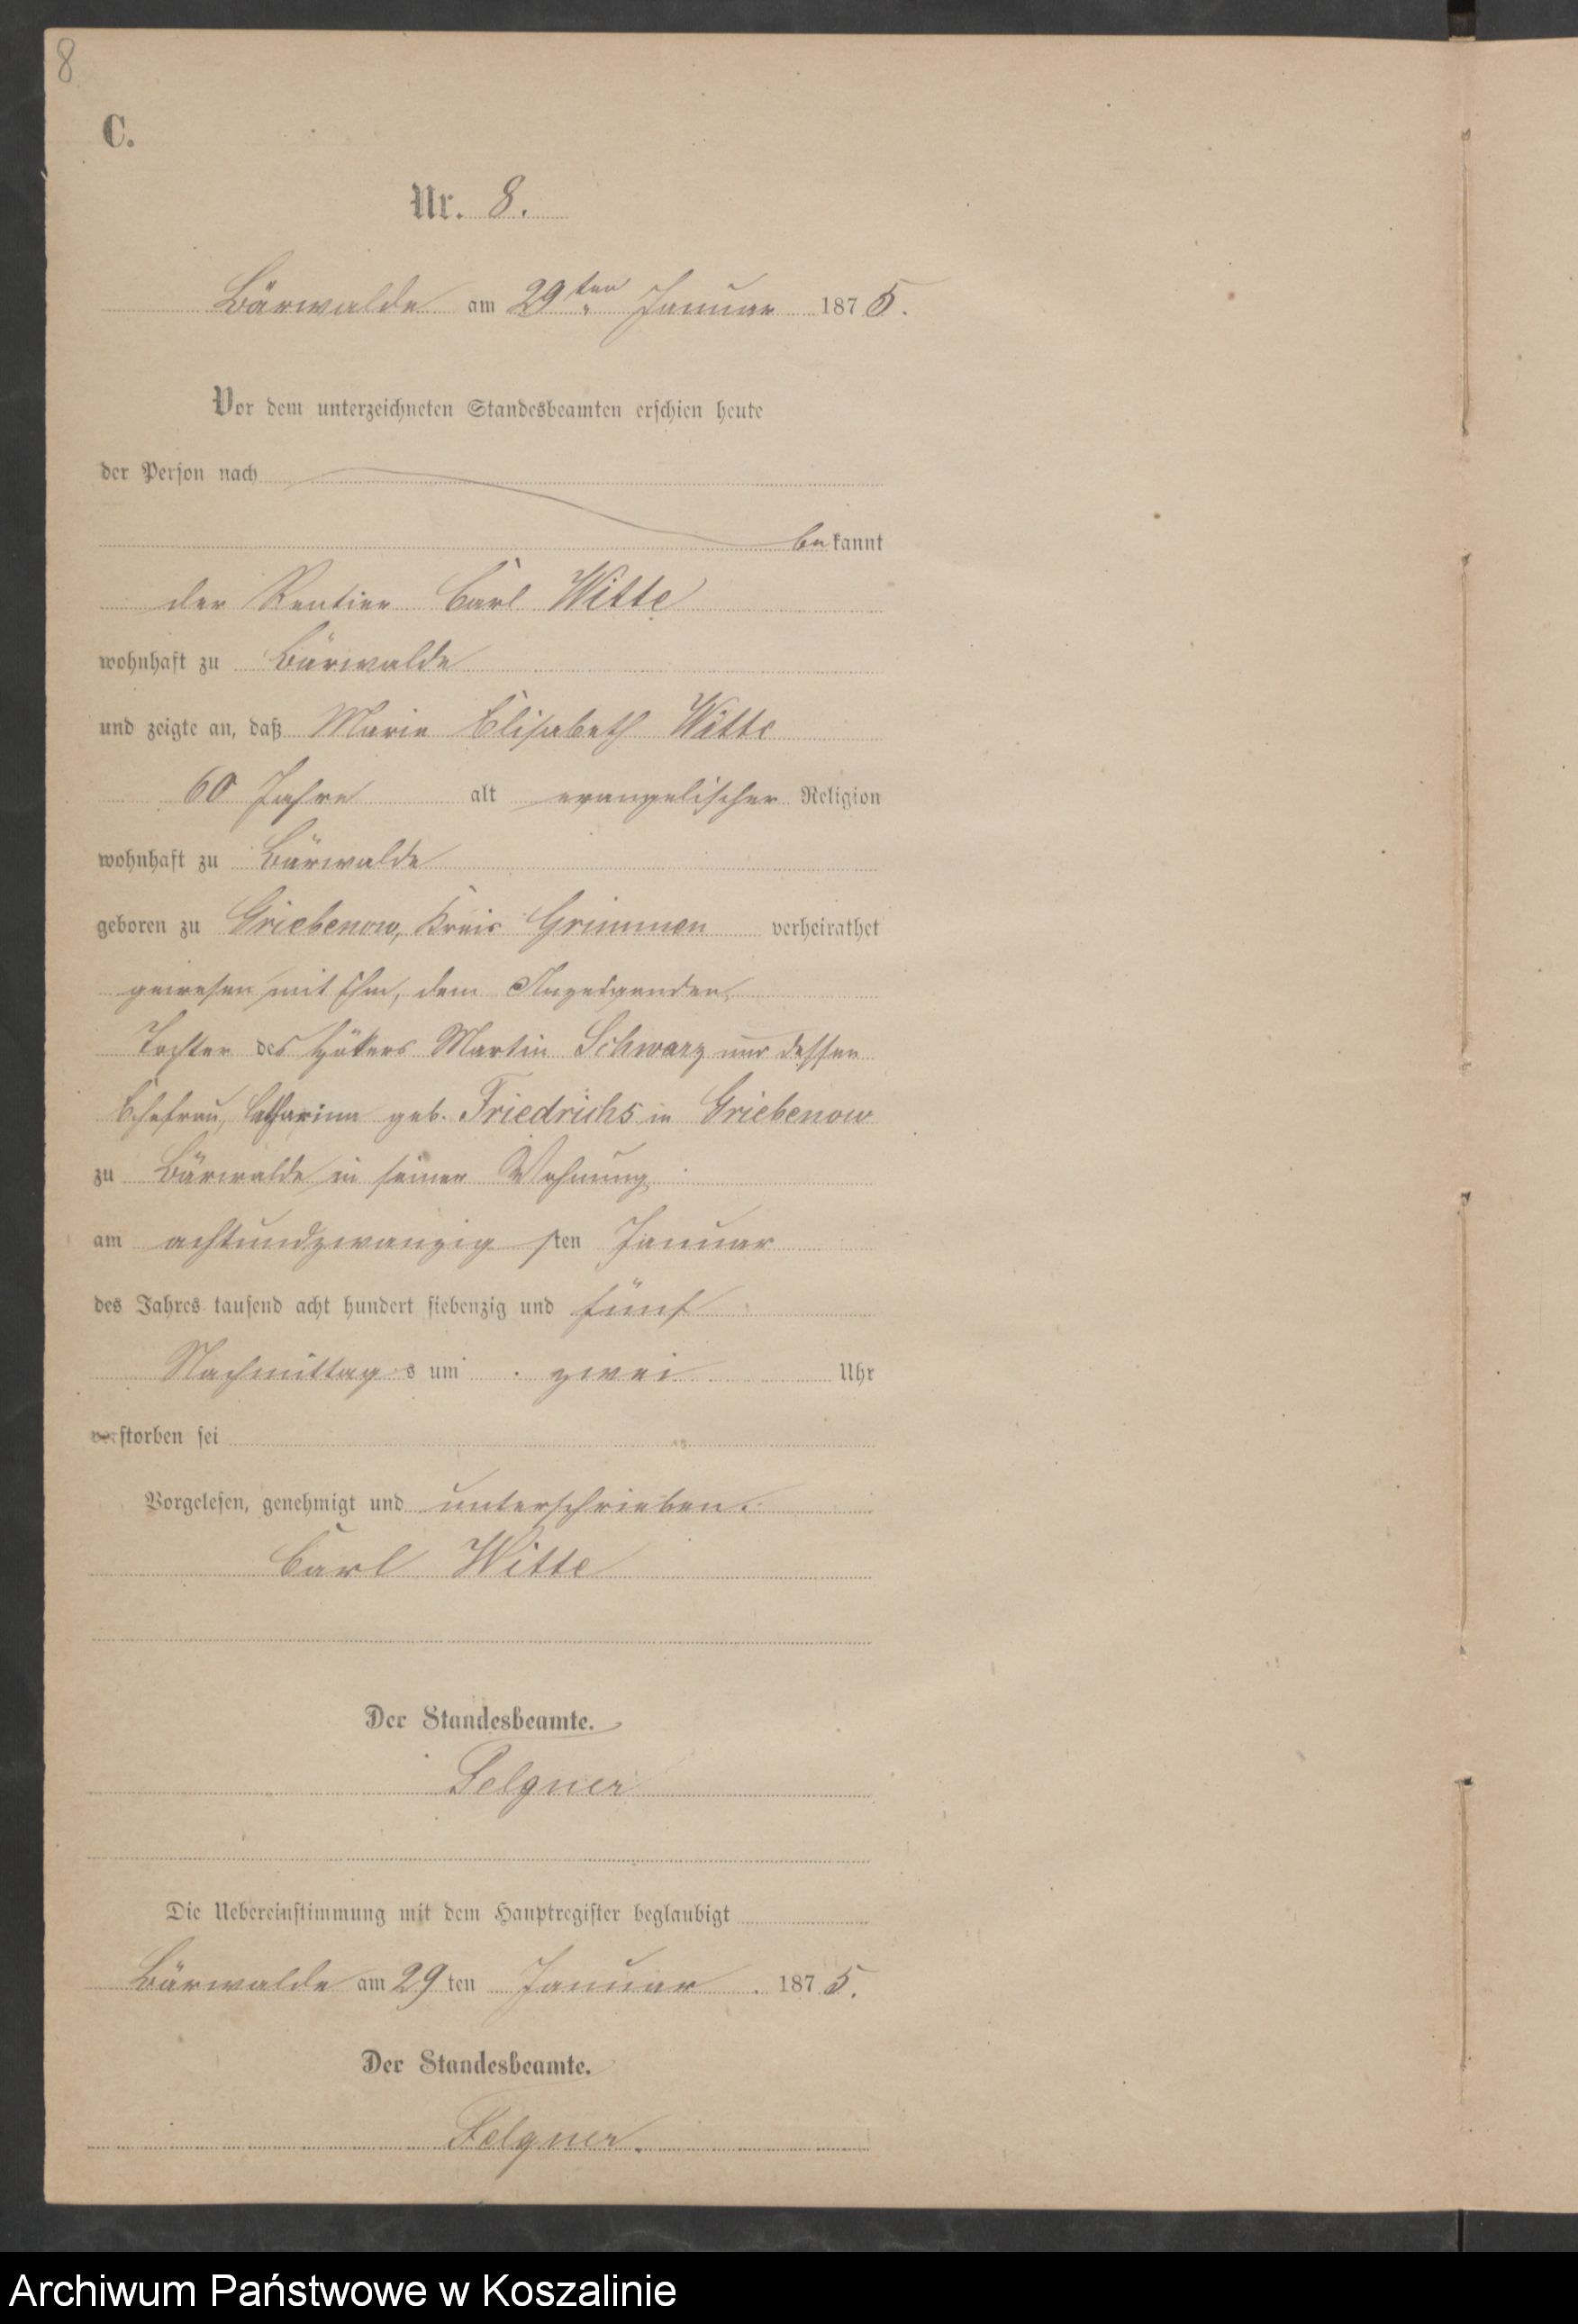 8
C.
Nr. 8.
Bärwalde am 29ten Januar 1875.
Vor dem unterzeichneten Standesbeamten erschien heute
der Person nach
bekannt
der Rentier Carl Witte
wohnhaft zu Bärwalde
und zeigte an, daß Marie Elisabeth Witte
60 Jahre alt evangelischer Religion
wohnhaft zu Bärwalde
geboren zu Griebenow, Kreis Grimmen verheirathet
gewesen mit ihm, dem Anzeigenden,
Tochter des Hökers Martin Schwarz und dessen
Ehefrau, Catharina geb. Friedrichs in Griebenow
zu Bärwalde in seiner Wohnung
am achtundzwanzigsten Januar
des Jahres tausend acht hundert siebenzig und fünf
Nachmittags um zwei Uhr
verstorben sei
Vorgelesen, genehmigt und unterschrieben.
Carl Witte
Der Standesbeamte.
Felgner
Die Uebereinstimmung mit dem Hauptregister beglaubigt
Bärwalde am 29ten Januar 1875.
Der Standesbeamte.
Felgner.
Archiwum Państwowe w Koszalinie